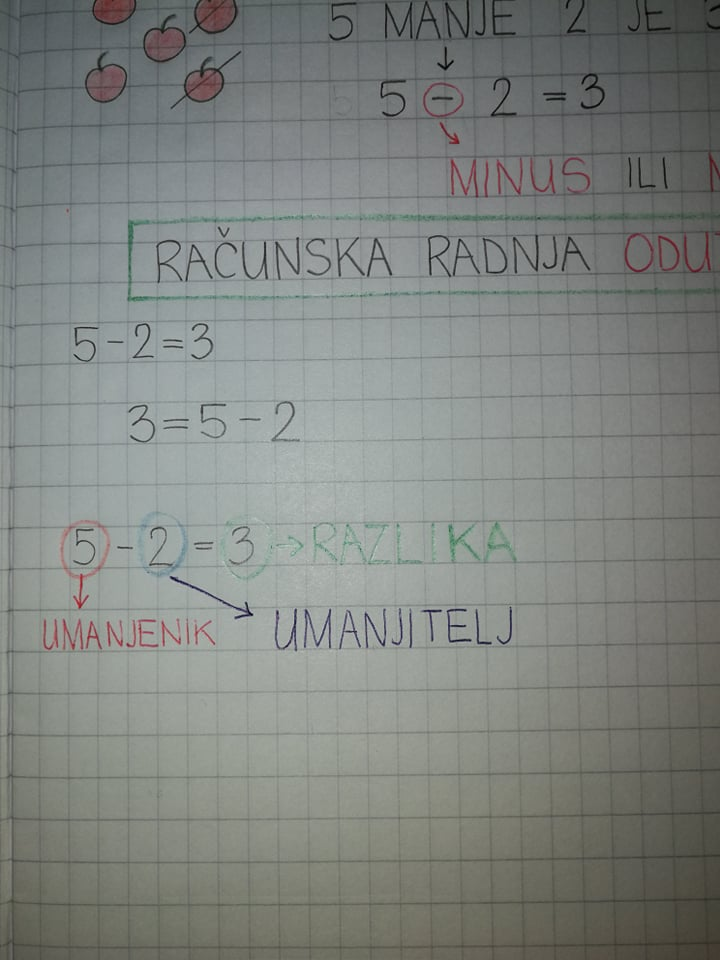 5 MANJE 2 JE
5 - 2 = 3
MINUS ILI
RAČUNSKA RADNJA
5-2=3
3=5-2
5-2=3→RAZLIKA
UMANJENIK UMANJITELJ